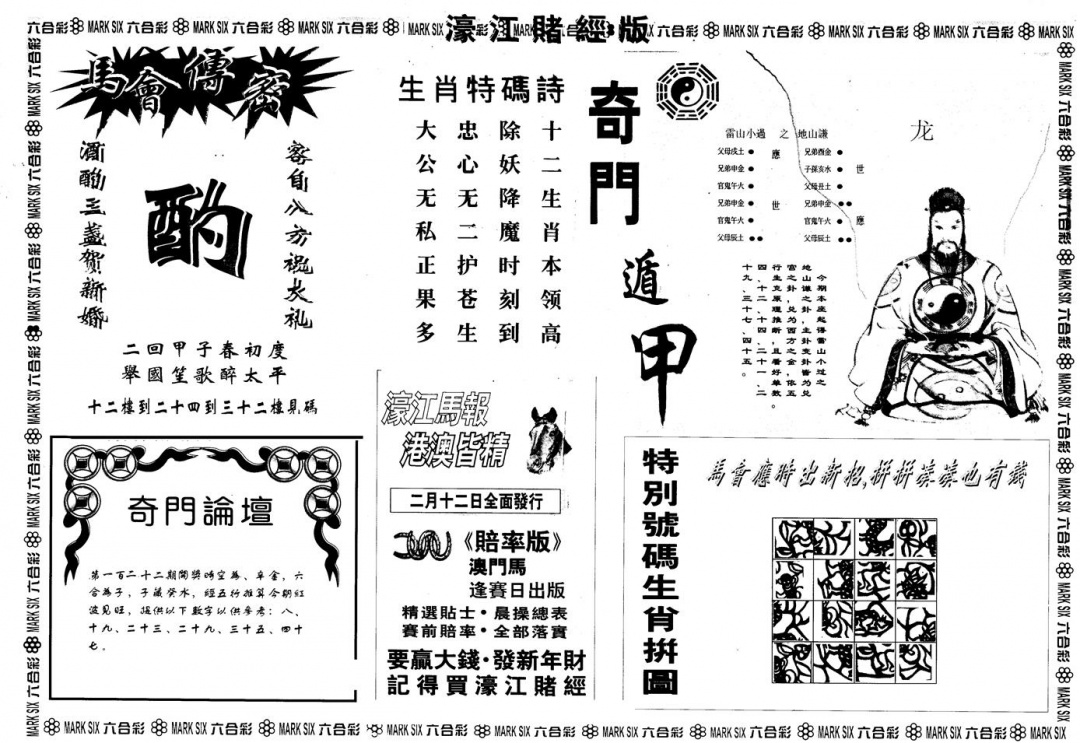 六合彩 MARK SIX 六合彩 MARK SIX 六合彩 MARK SIX 六合彩 MARK SIX 六合彩 MARK SIX
濠江賭經版
六合彩 MARK SIX 六合彩 MARK SIX 六合彩 MARK SIX 六合彩 MARK SIX
馬會傳密
客自八方祝大礼
酌
酒酌三盞贺新婚
二回甲子春初度
舉國笙歌醉太平
十二樓到二十四到三十二樓見碼
生肖特碼詩
十二生肖本领高
除妖降魔时刻到
忠心无二护苍生
大公无私正果多
奇門遁甲
雷山小過 之 地山謙
父母戌土 應 兄弟酉金
兄弟申金 子孫亥水 世
官鬼午火 父母丑土
兄弟申金 世 兄弟申金
官鬼午火 官鬼午火 應
父母辰土 父母辰土
龙
今期本座起得雷山小过之
地山谦之卦,主卦变卦皆为兑
宫之卦,兑为西方之金,依五
行生克原理推断,且看好单数。
四、十二、十四、二十一、二
十九、三十七、四十五。
奇門論壇
第一百二十二期開獎時空為、辛金,六
合為子,子藏癸水,經五行推算今期紅
波見旺,提供以下數字以供參考:八、
十九、二十三、二十九、三十五、四十
七。
濠江馬報
港澳皆精
二月十二日全面發行
《賠率版》
澳門馬
逢賽日出版
精選貼士·晨操總表
賽前賠率·全部落實
要贏大錢·發新年財
記得買濠江賭經
特別號碼生肖拼圖
馬會應時出新招,拼拼湊湊也有錢
MARK SIX 六合彩 MARK SIX 六合彩 MARK SIX 六合彩 MARK SIX 六合彩 MARK SIX 六合彩 MARK SIX 六合彩 MARK SIX 六合彩 MARK SIX 六合彩 MARK SIX 六合彩 MARK SIX